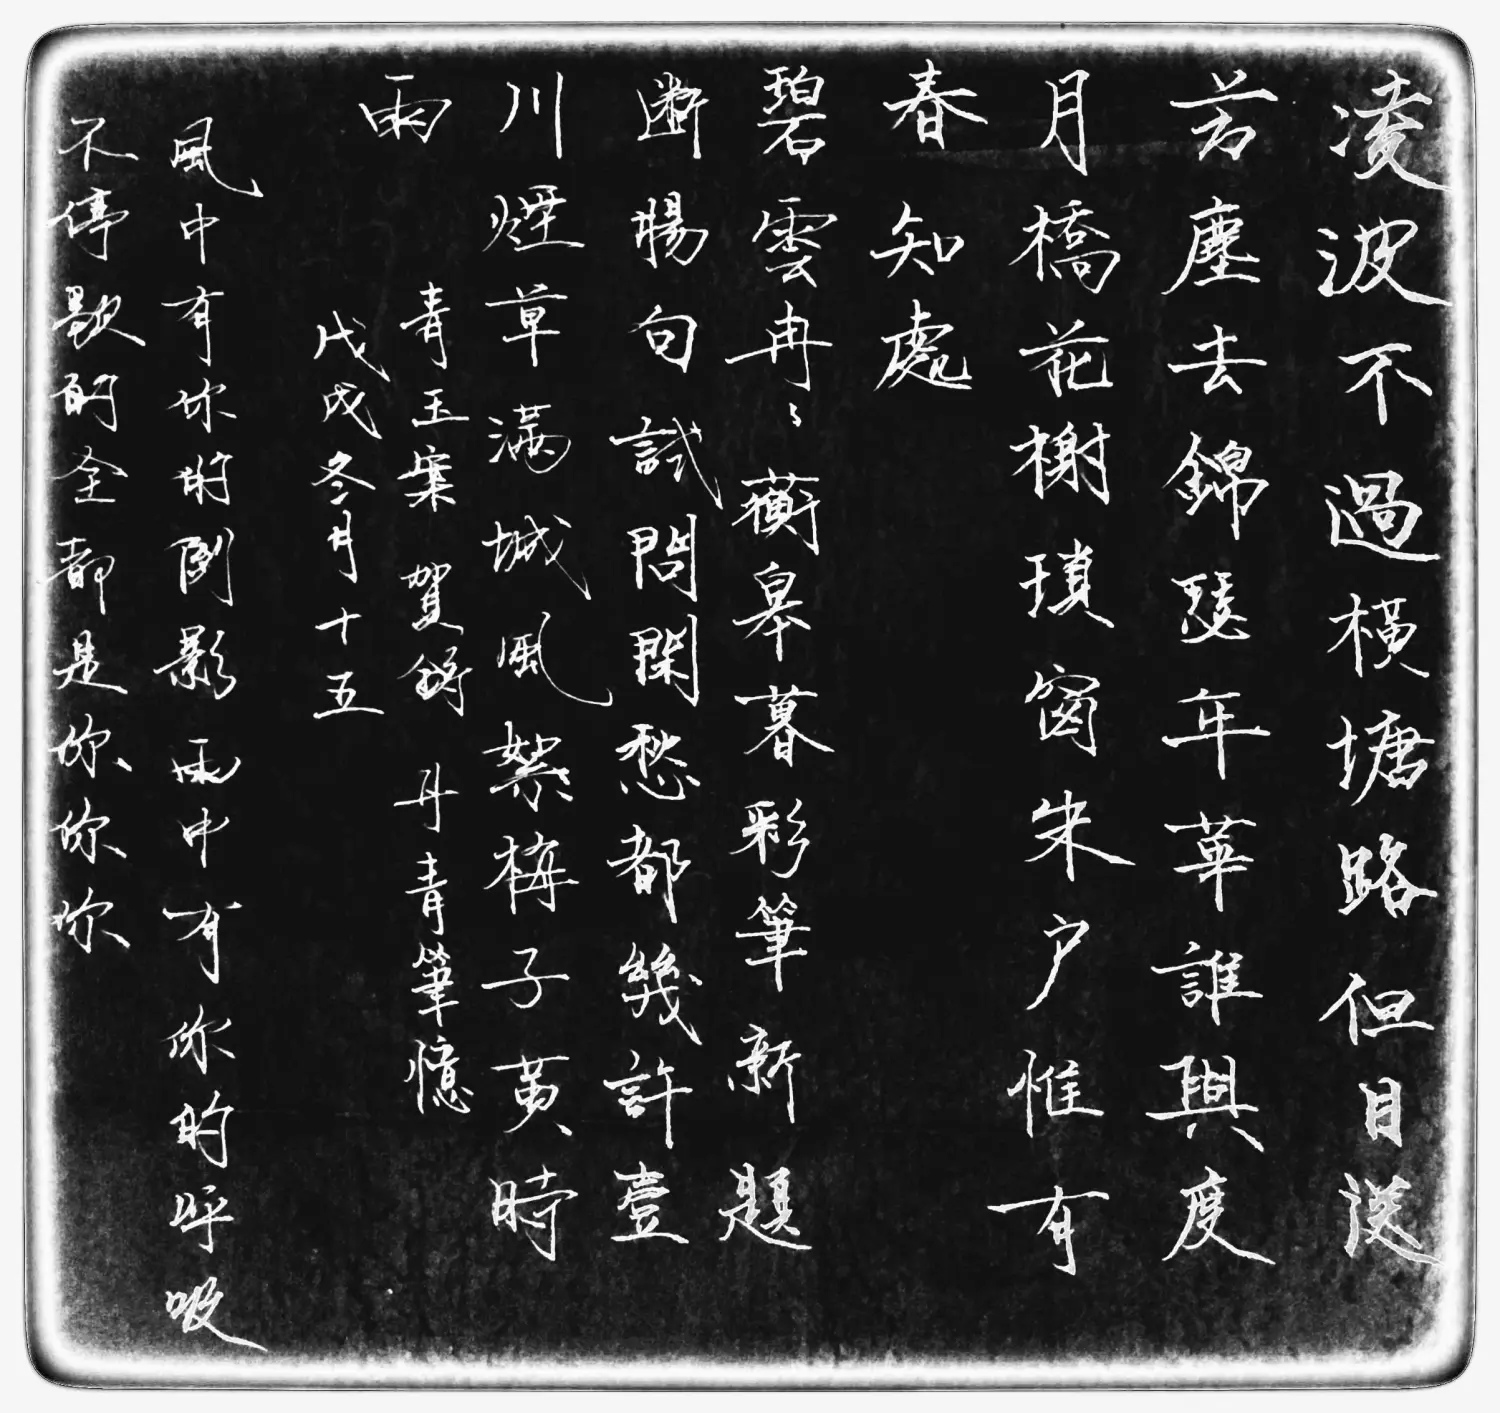 凌波不過橫塘路但目送
芳塵去錦瑟年華誰與度
月橋花榭瑣窗朱户惟有
春知處
碧雲冉〻蘅皋暮彩筆新題
斷腸句試問閑愁都幾許壹
川煙草滿城風絮梅子黃時
雨
青玉案 賀鑄 丹青筆憶
戊戌冬月十五
風中有你的倒影雨中有你的呼吸
不停歇的全都是你你你